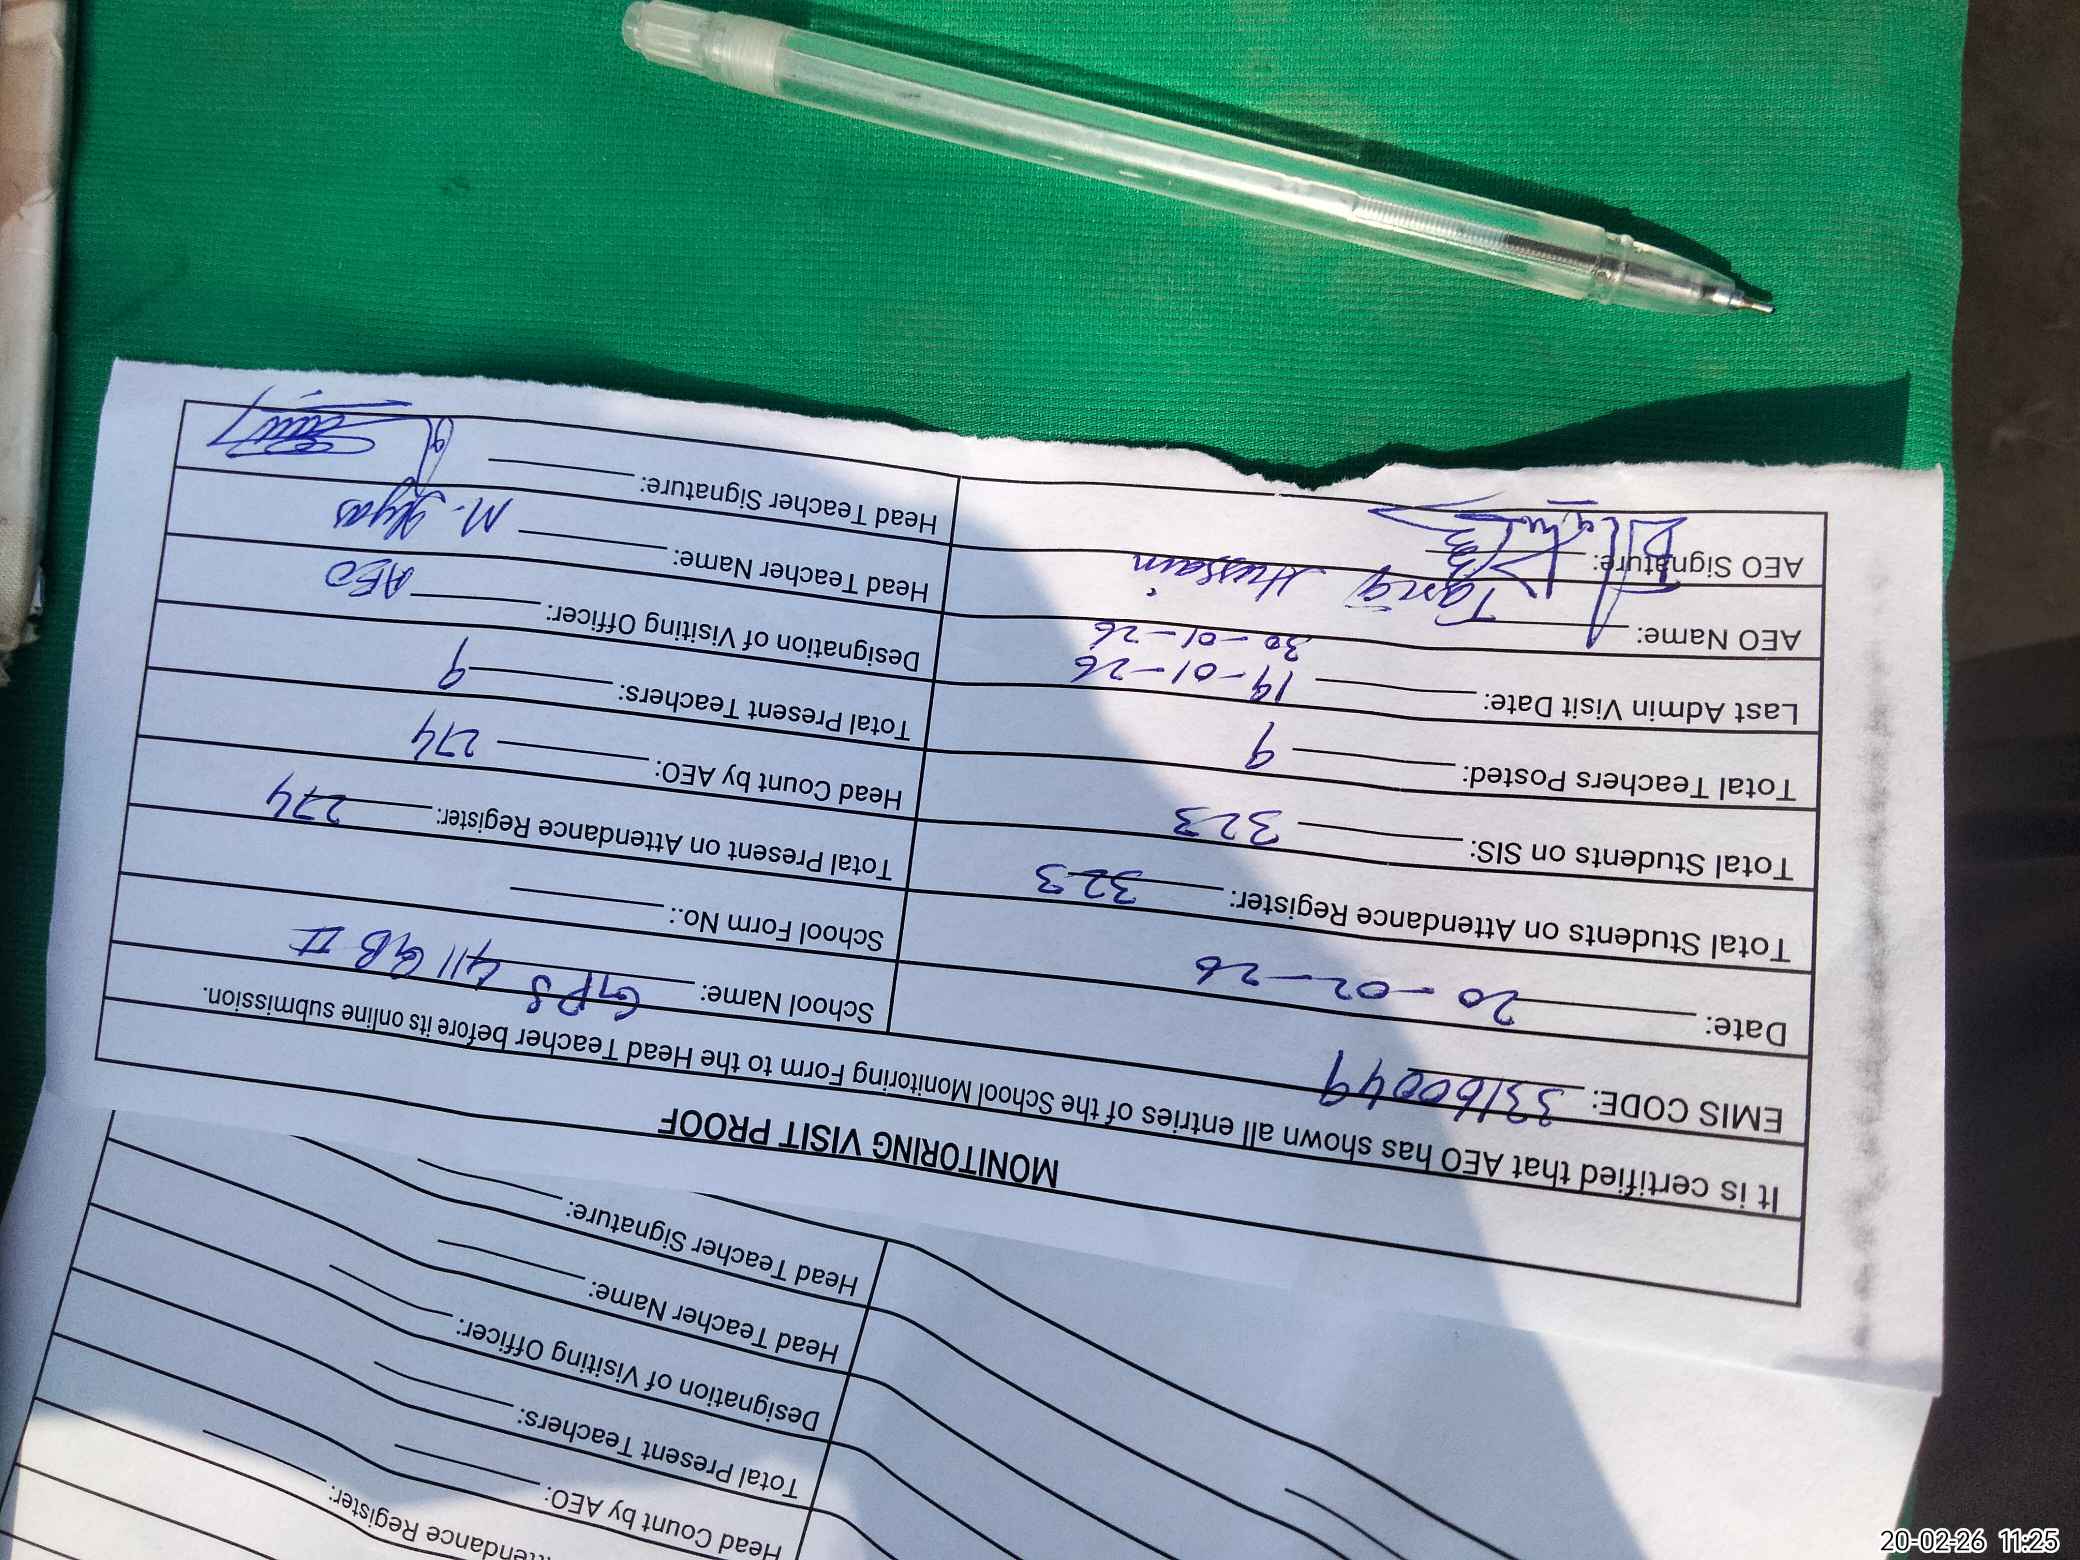 MONITORING VISIT PROOF
It is certified that AEO has shown all entries of the School Monitoring Form to the Head Teacher before its online submission.
EMIS CODE: 33160049 School Name: GPS 411 GB II
Date: 20-02-26 School Form No.:
Total Students on Attendance Register: 323 Total Present on Attendance Register: 274
Total Students on SIS: 323 Head Count by AEO: 274
Total Teachers Posted: 9 Total Present Teachers: 9
Last Admin Visit Date: 19-01-26 30-01-26 Designation of Visiting Officer: AEO
AEO Name: Tariq Hussain Head Teacher Name: M. Ilyas
AEO Signature: Head Teacher Signature:
Attendance Register:
Head Count by AEO:
Total Present Teachers:
Designation of Visiting Officer:
Head Teacher Name:
Head Teacher Signature:
20-02-26 11:25